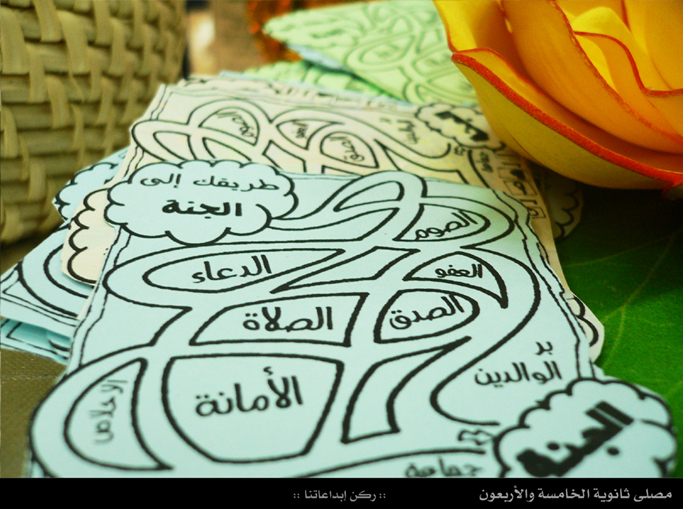 طريقك إلى
الجنة
الصوم
الدعاء
العفو
الصلاة
الصدق
الأمانة
الإخلاص
بر
الوالدين
الجنة
مصلى ثانوية الخامسة والأربعون
:: ركن إبداعاتنا ::